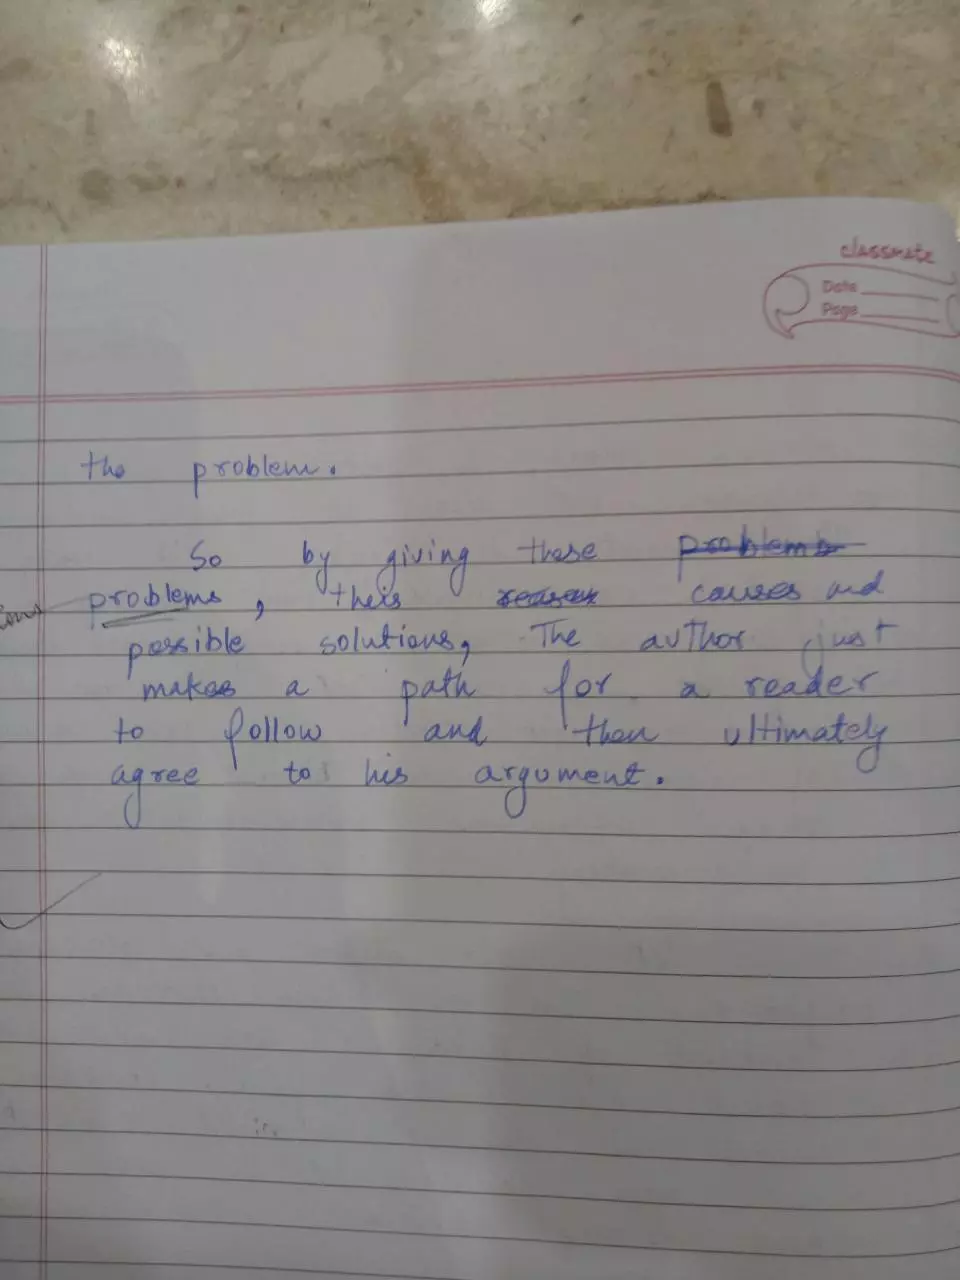 classmate
Date
Page
the problem.
So by giving these problems
problems, their causes and
possible solutions, The author just
makes a path for a reader
to follow and then ultimately
agree to his argument.